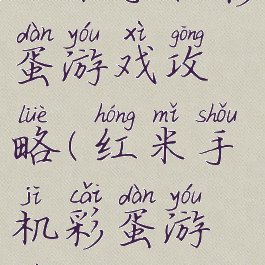 dàn yóu xì gōng
蛋游戏攻
lüè hóng mǐ shǒu
略(红米手
jī cǎi dàn yóu
机彩蛋游